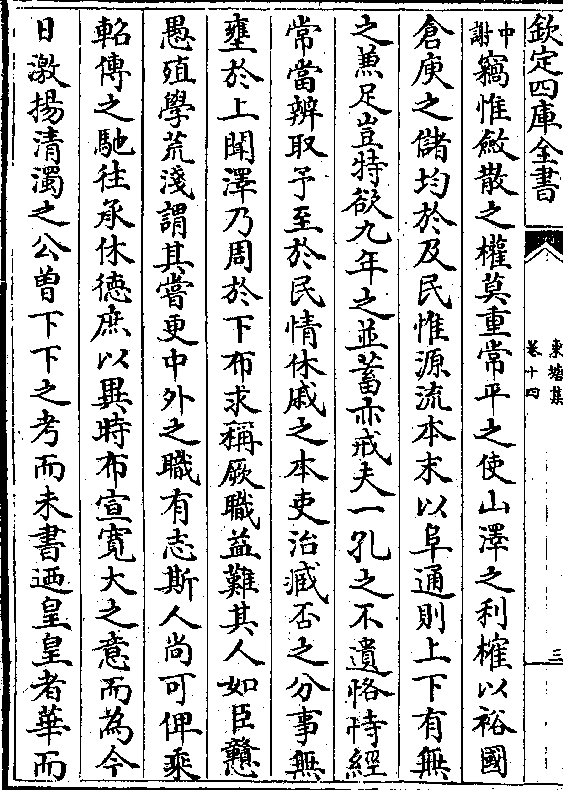 欽定四庫全書
東塘集
卷十四
三
中謝竊惟斂散之權莫重常平之使山澤之利榷以裕國
倉庾之儲均於及民惟源流本末以阜通則上下有無
之兼足豈特欲九年之並蓄亦戒夫一孔之不遺恪恃經
常當辨取予至於民情休戚之本吏治臧否之分事無
壅於上聞澤乃周於下布求稱厥職益難其人如臣戇
愚殖學荒淺謂其嘗更中外之職有志斯人尚可俾乘
軺傳之馳往承休德庶以異時布宣寛大之意而為今
日激揚清濁之公曽下下之考而未書迺皇皇者華而